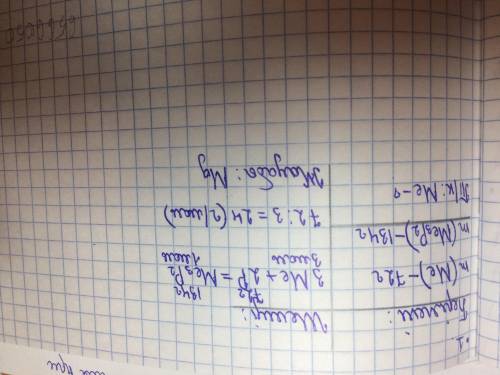 1.
Берілген:
m(Me) – 72г
m(Me₃P₂) – 134г
Т/к: Me – ?
Шешуі:
72г 134г
3Me + 2P = Me₃P₂
3моль 1моль
72 : 3 = 24 (г/моль)
Жауабы: Mg